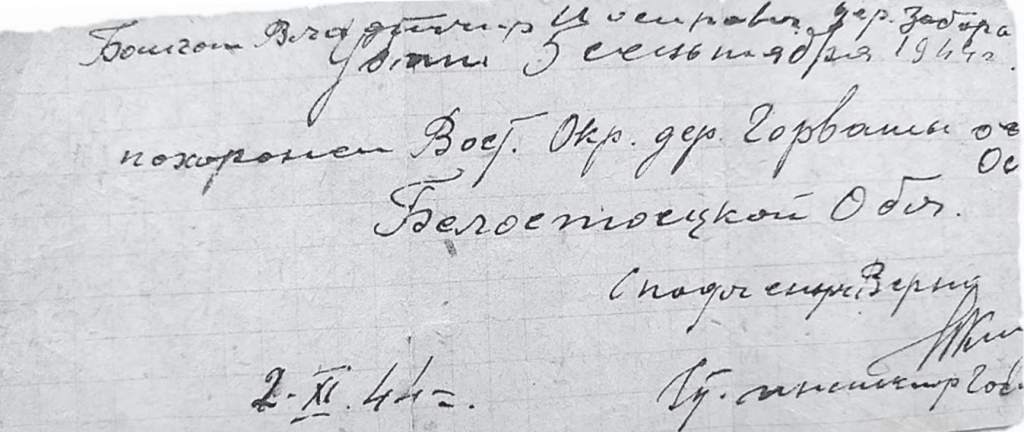 Владимир Иосифович дер. Забора
Убит 5 сентября 1944г.
похоронен Вост. Окр. дер. Горваты
Белостоцкой Обл.
С подленым Верно
2. XI. 44г.
Гу. инспектор Гос